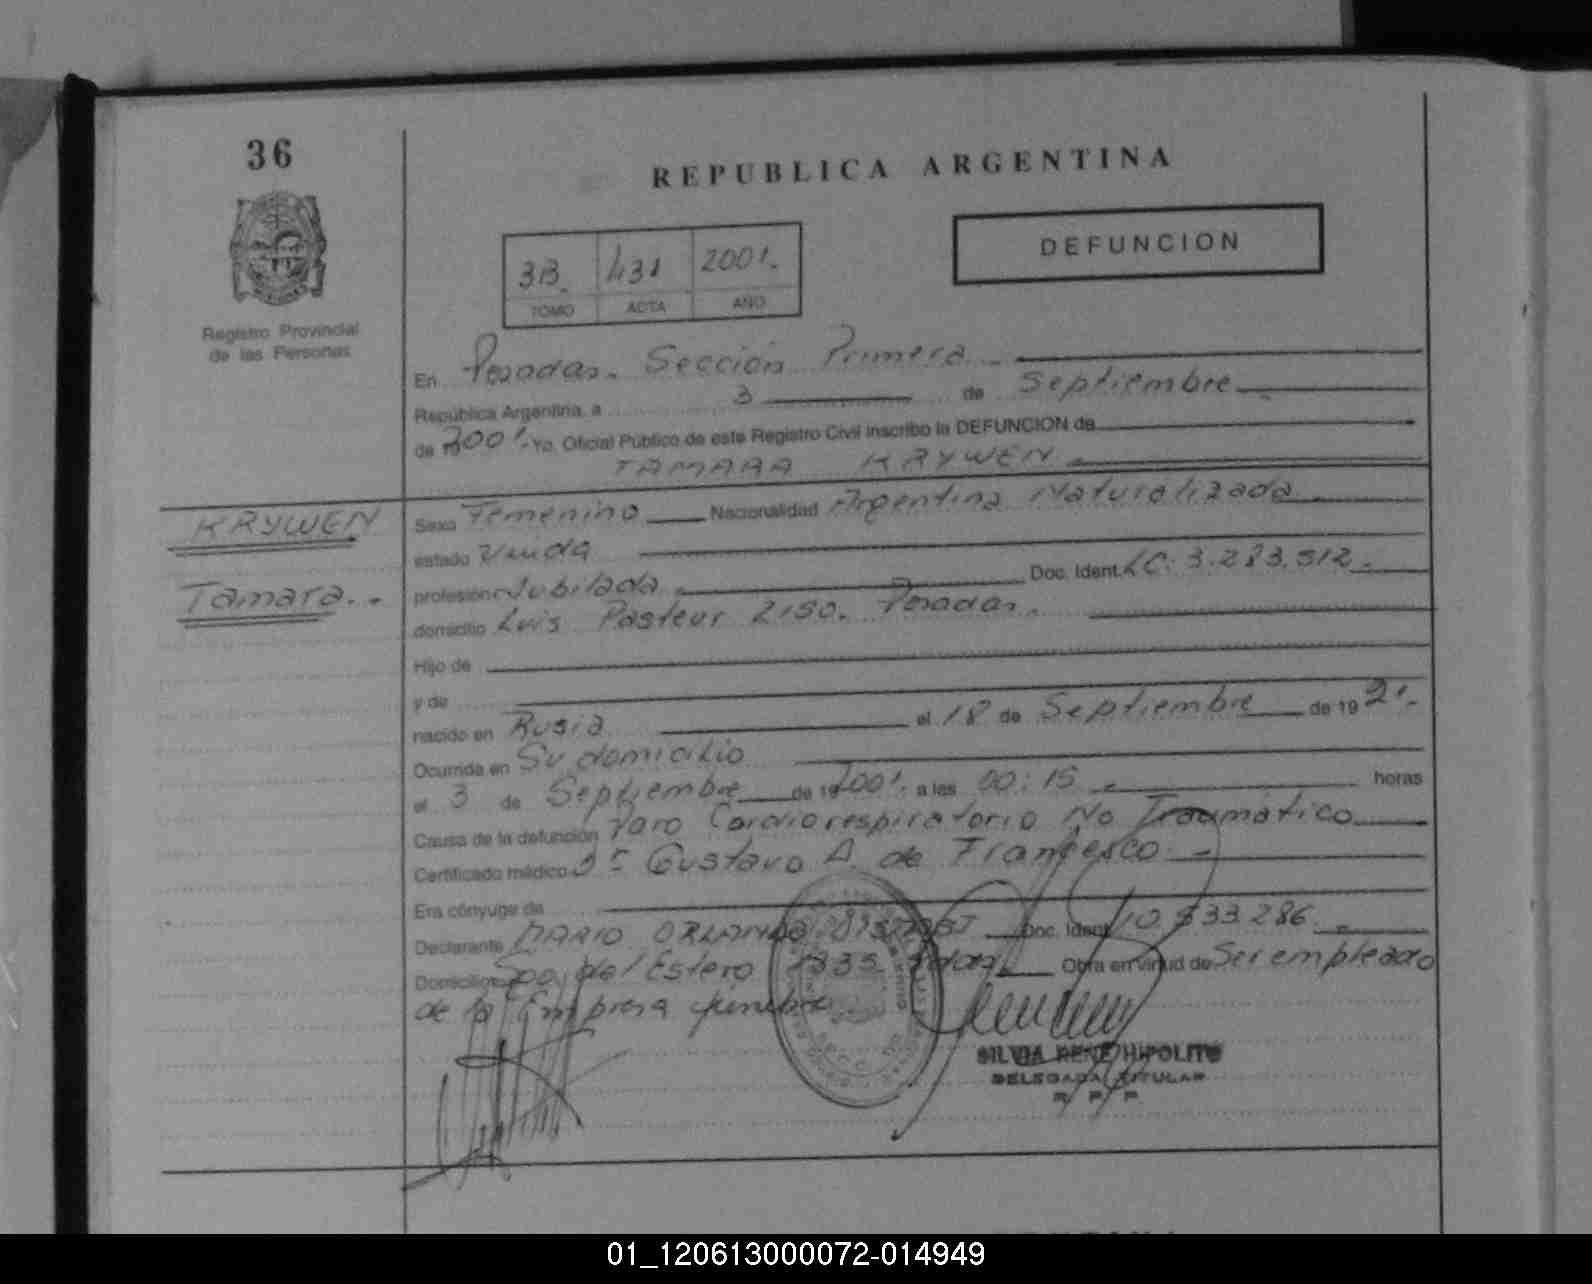 36
REPUBLICA ARGENTINA
Registro Provincial
de las Personas
3B. 431 2001.
TOMO ACTA AÑO
DEFUNCION
En Posadas. Sección Primera
República Argentina, a 3 de Septiembre
de 19 2001. Yo, Oficial Público de este Registro Civil inscribo la DEFUNCION de
TAMARA KRYWEN
KRYWEN
Tamara..
Sexo Femenino Nacionalidad Argentina Naturalizada
estado Viuda
profesión Jubilada Doc. Ident. LC. 3.283.512.
domicilio Luis Pasteur 2150. Posadas.
Hijo de
y de
nacido en Rusia el 18 de Septiembre de 19 21.
Ocurrida en Su domicilio
el 3 de Septiembre de 19 2001. a las 00:15 horas
Causa de la defunción Paro Cardiorespiratorio No Traumático
Certificado médico Dr Gustavo A. de Francesco.
Era cónyuge de
Declarante MARIO ORLANDO Doc. Ident. 10.533.286.
Domicilio Sgo. del Estero 1335 Obra en virtud de Ser empleado
de la Empresa funebre
SILVIA RENE HIPOLITO
DELEGADA TITULAR
R P P
01_120613000072-014949